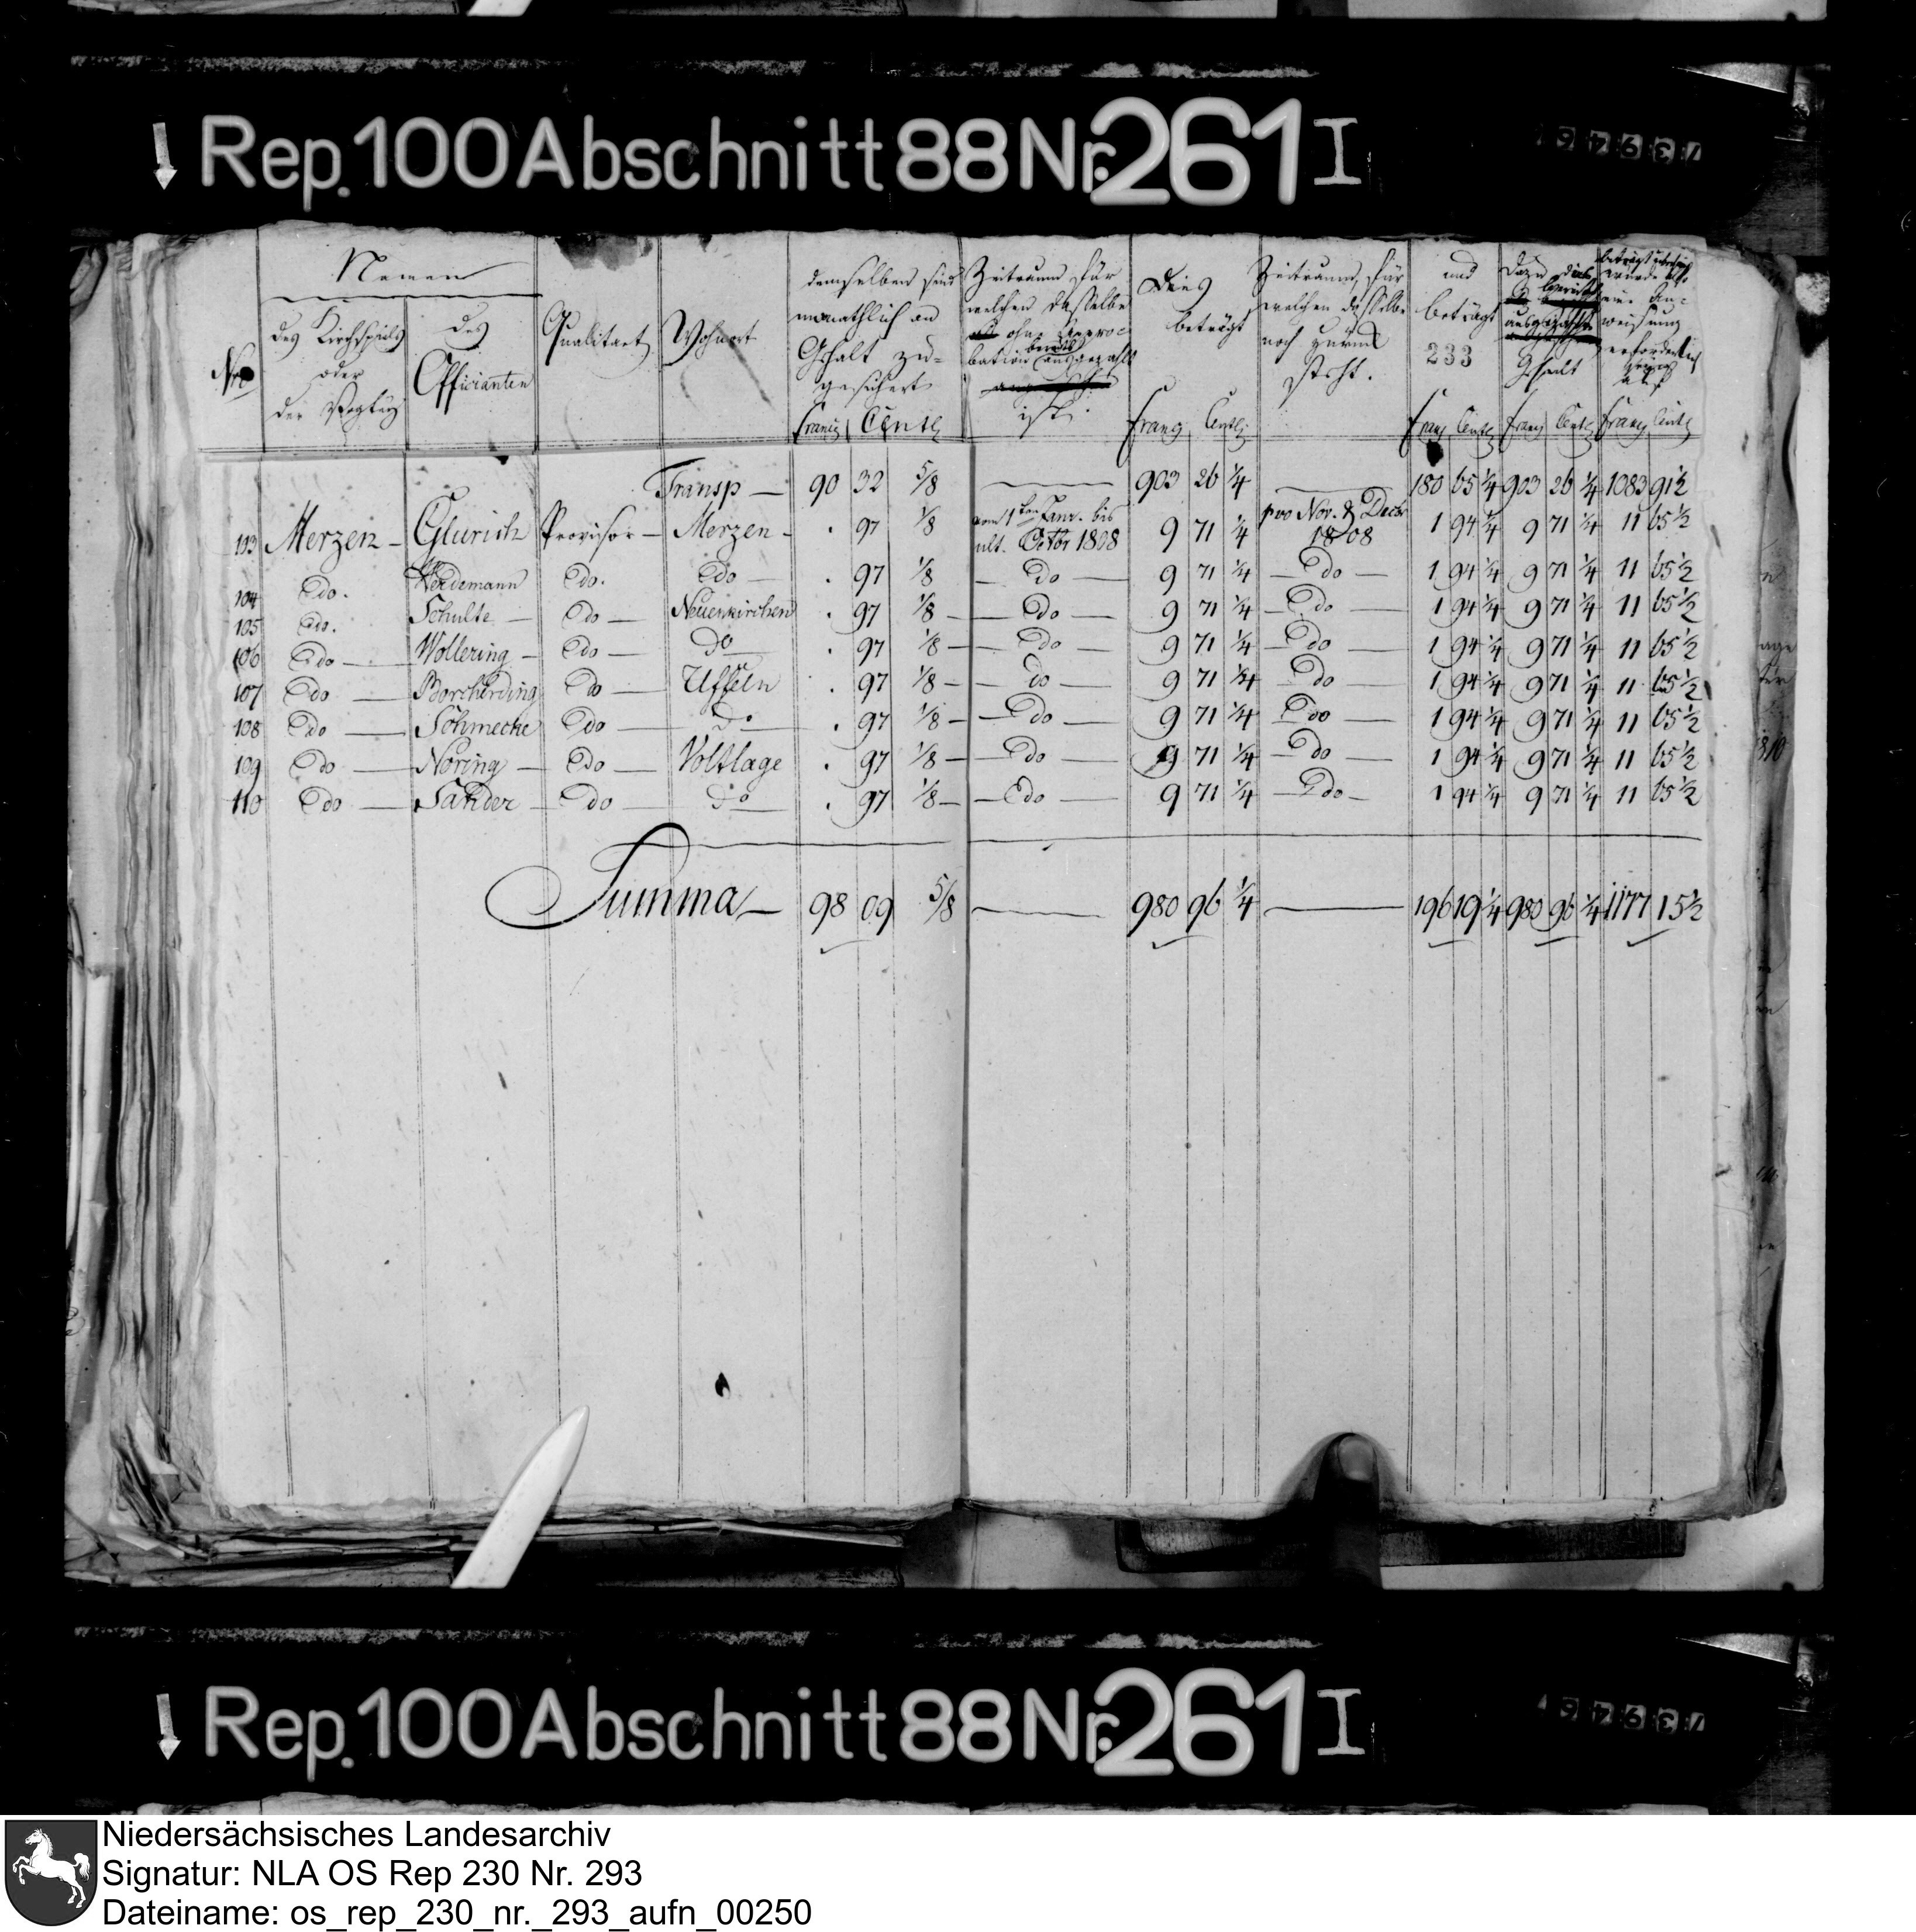 Rep. 100 Abschnitt 88 Nr. 261 I
Nro
Namen
des Kirchspiels
oder
der Vogtey
des
Officianten
Qualitaet
Wohnort
demselben sind
monathlich an
Gehalt zu-
gesichert
Francs Centl
Zeitraum für
welchen dasselbe
ohne Appro-
bation bereits ausgezahlt
ist.
Dies
beträgt
Francs Centl
Zeitraum, für
welchen dasselbe
noch zurück
steht.
und
beträgt
233
Francs Centl
Dazu das bereits
ausgezahlte
Gehalt
Francs Centl
beträgt
würde also
eine An-
weisung
erforderlich
seyn
auf
Francs Centl
Transp — 90 32 5/8 — 903 26 1/4 — 180 65 1/4 903 26 1/4 1083 91 1/2
103 Merzen — Glurich Provisor — Merzen — . 97 1/8 vom 1ten Janr. bis ult. Octbr 1808 9 71 1/4 pro Nov. & Decbr 1808 1 94 1/4 9 71 1/4 11 65 1/2
104 do. Werdemann do. do — . 97 1/8 — do — 9 71 1/4 — do — 1 94 1/4 9 71 1/4 11 65 1/2
105 do. Schulte — do — Neuenkirchen . 97 1/8 — do — 9 71 1/4 — do — 1 94 1/4 9 71 1/4 11 65 1/2
106 do — Wollering — do — do . 97 1/8 — do — 9 71 1/4 — do — 1 94 1/4 9 71 1/4 11 65 1/2
107 do — Borcherding do — Uffeln . 97 1/8 — do — 9 71 1/4 — do — 1 94 1/4 9 71 1/4 11 65 1/2
108 do — Schmecke do — do . 97 1/8 — do — 9 71 1/4 do — 1 94 1/4 9 71 1/4 11 65 1/2
109 do — Noring — do — Voltlage . 97 1/8 — do — 9 71 1/4 — do — 1 94 1/4 9 71 1/4 11 65 1/2
110 do — Sander — do — do . 97 1/8 — do — 9 71 1/4 — do — 1 94 1/4 9 71 1/4 11 65 1/2
Summa — 98 09 5/8 — 980 96 1/4 — 196 19 1/4 980 96 1/4 1177 15 1/2
Rep. 100 Abschnitt 88 Nr. 261 I
Niedersächsisches Landesarchiv
Signatur: NLA OS Rep 230 Nr. 293
Dateiname: os_rep_230_nr._293_aufn_00250